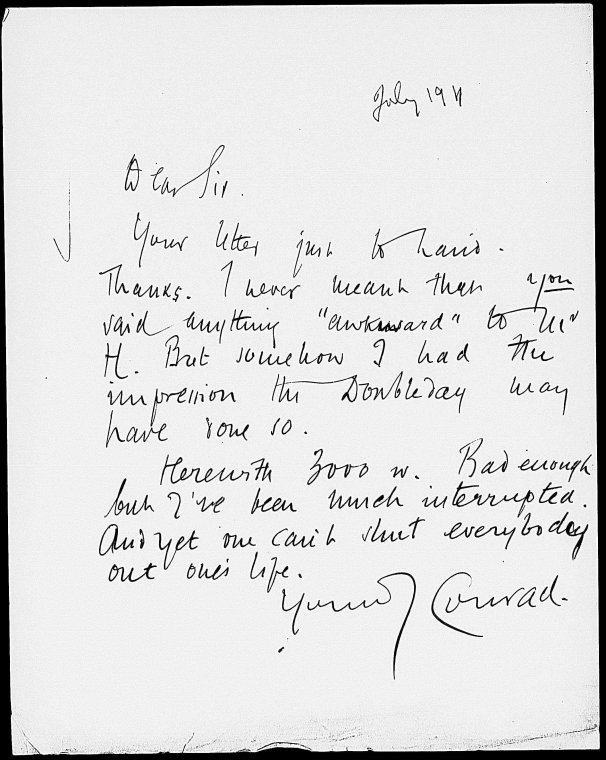 July 1911
Dear Sir.
Your letter just to hand.
Thanks. I never meant that you
said anything "awkward" to Mr
H. But somehow I had the
impression tht Doubleday may
have done so.
Herewith 3000 w. Bad enough
but I've been much interrupted.
And yet one can't shut everybody
out one's life.
Yours J Conrad.